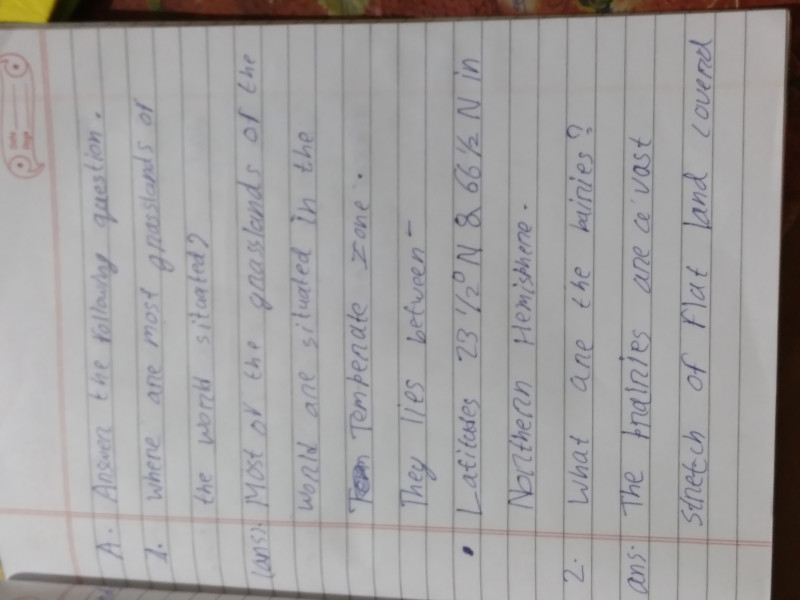 A. Answer the following question.
1. where are most grasslands of
the world situated?
(ans). Most of the grasslands of the
world are situated in the
Temperate zone.
They lies between-
• Latitudes 23 1/2° N & 66 1/2 N in
Northern Hemisphere.
2. What are the wiries?
ans. The prairies are a vast
stretch of flat land coverd